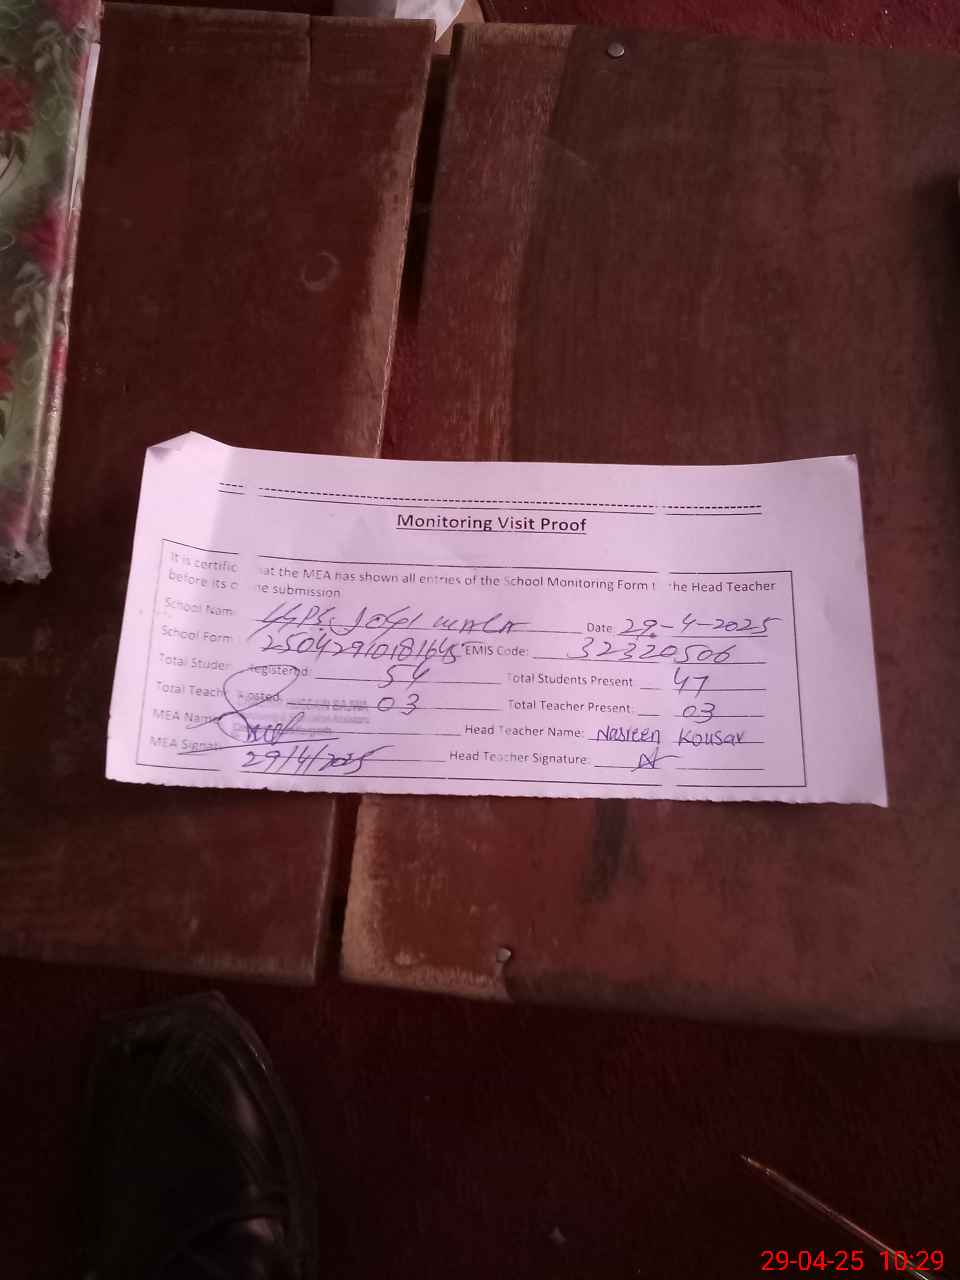 Monitoring Visit Proof
It is certific at the MEA has shown all entries of the School Monitoring Form t the Head Teacher
before its o ne submission
School Nam Date 29-4-2025
School Form 25042910181645 EMIS Code: 32320506
Total Studen Registered: 54 Total Students Present 47
Total Teach Posted: 03 Total Teacher Present: 03
MEA Name Head Teacher Name: Nasreen Kousar
MEA Signat 29/4/2025 Head Teacher Signature:
29-04-25 10:29